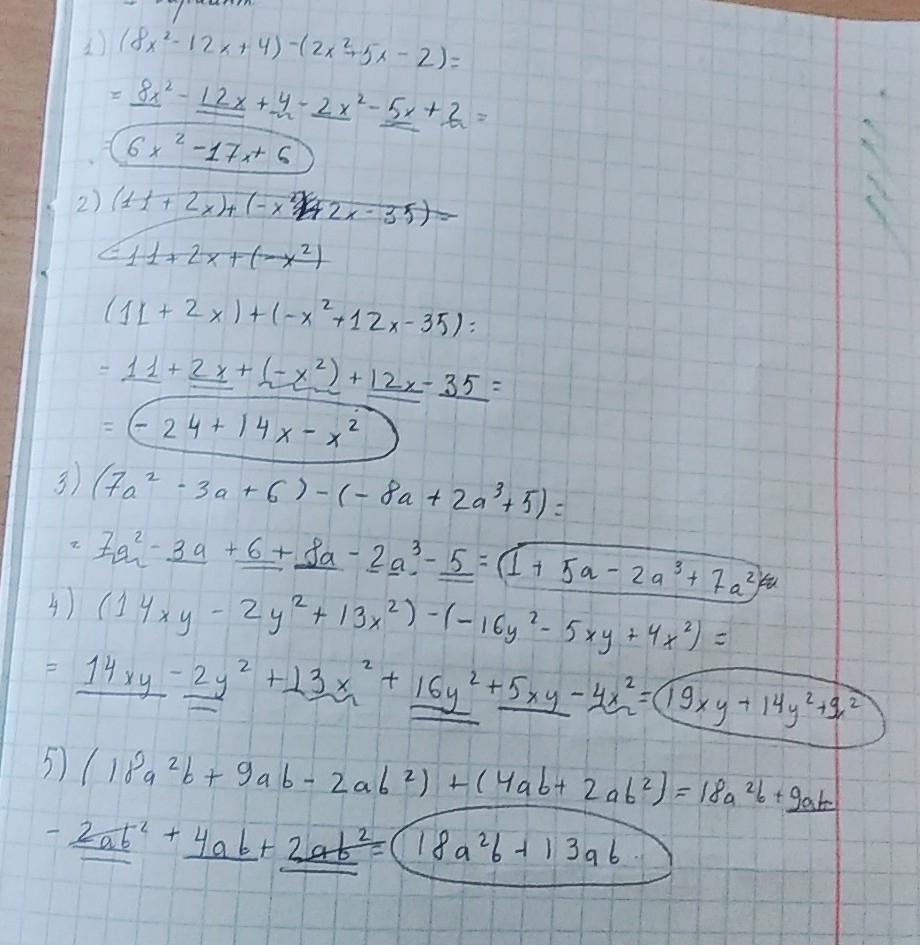 вариант
1) (8x² - 12x + 4) - (2x² + 5x - 2) =
= 8x² - 12x + 4 - 2x² - 5x + 2 =
= 6x² - 17x + 6
2) (11 + 2x) + (-x² + 12x - 35) =
= 11 + 2x + (-x²)
(11 + 2x) + (-x² + 12x - 35) =
= 11 + 2x + (-x²) + 12x - 35 =
= -24 + 14x - x²
3) (7a² - 3a + 6) - (-8a + 2a³ + 5) =
= 7a² - 3a + 6 + 8a - 2a³ - 5 = 1 + 5a - 2a³ + 7a²
4) (14xy - 2y² + 13x²) - (-16y² - 5xy + 4x²) =
= 14xy - 2y² + 13x² + 16y² + 5xy - 4x² = 19xy + 14y² + 9x²
5) (18a²b + 9ab - 2ab²) + (4ab + 2ab²) = 18a²b + 9ab
- 2ab² + 4ab + 2ab² = 18a²b + 13ab.